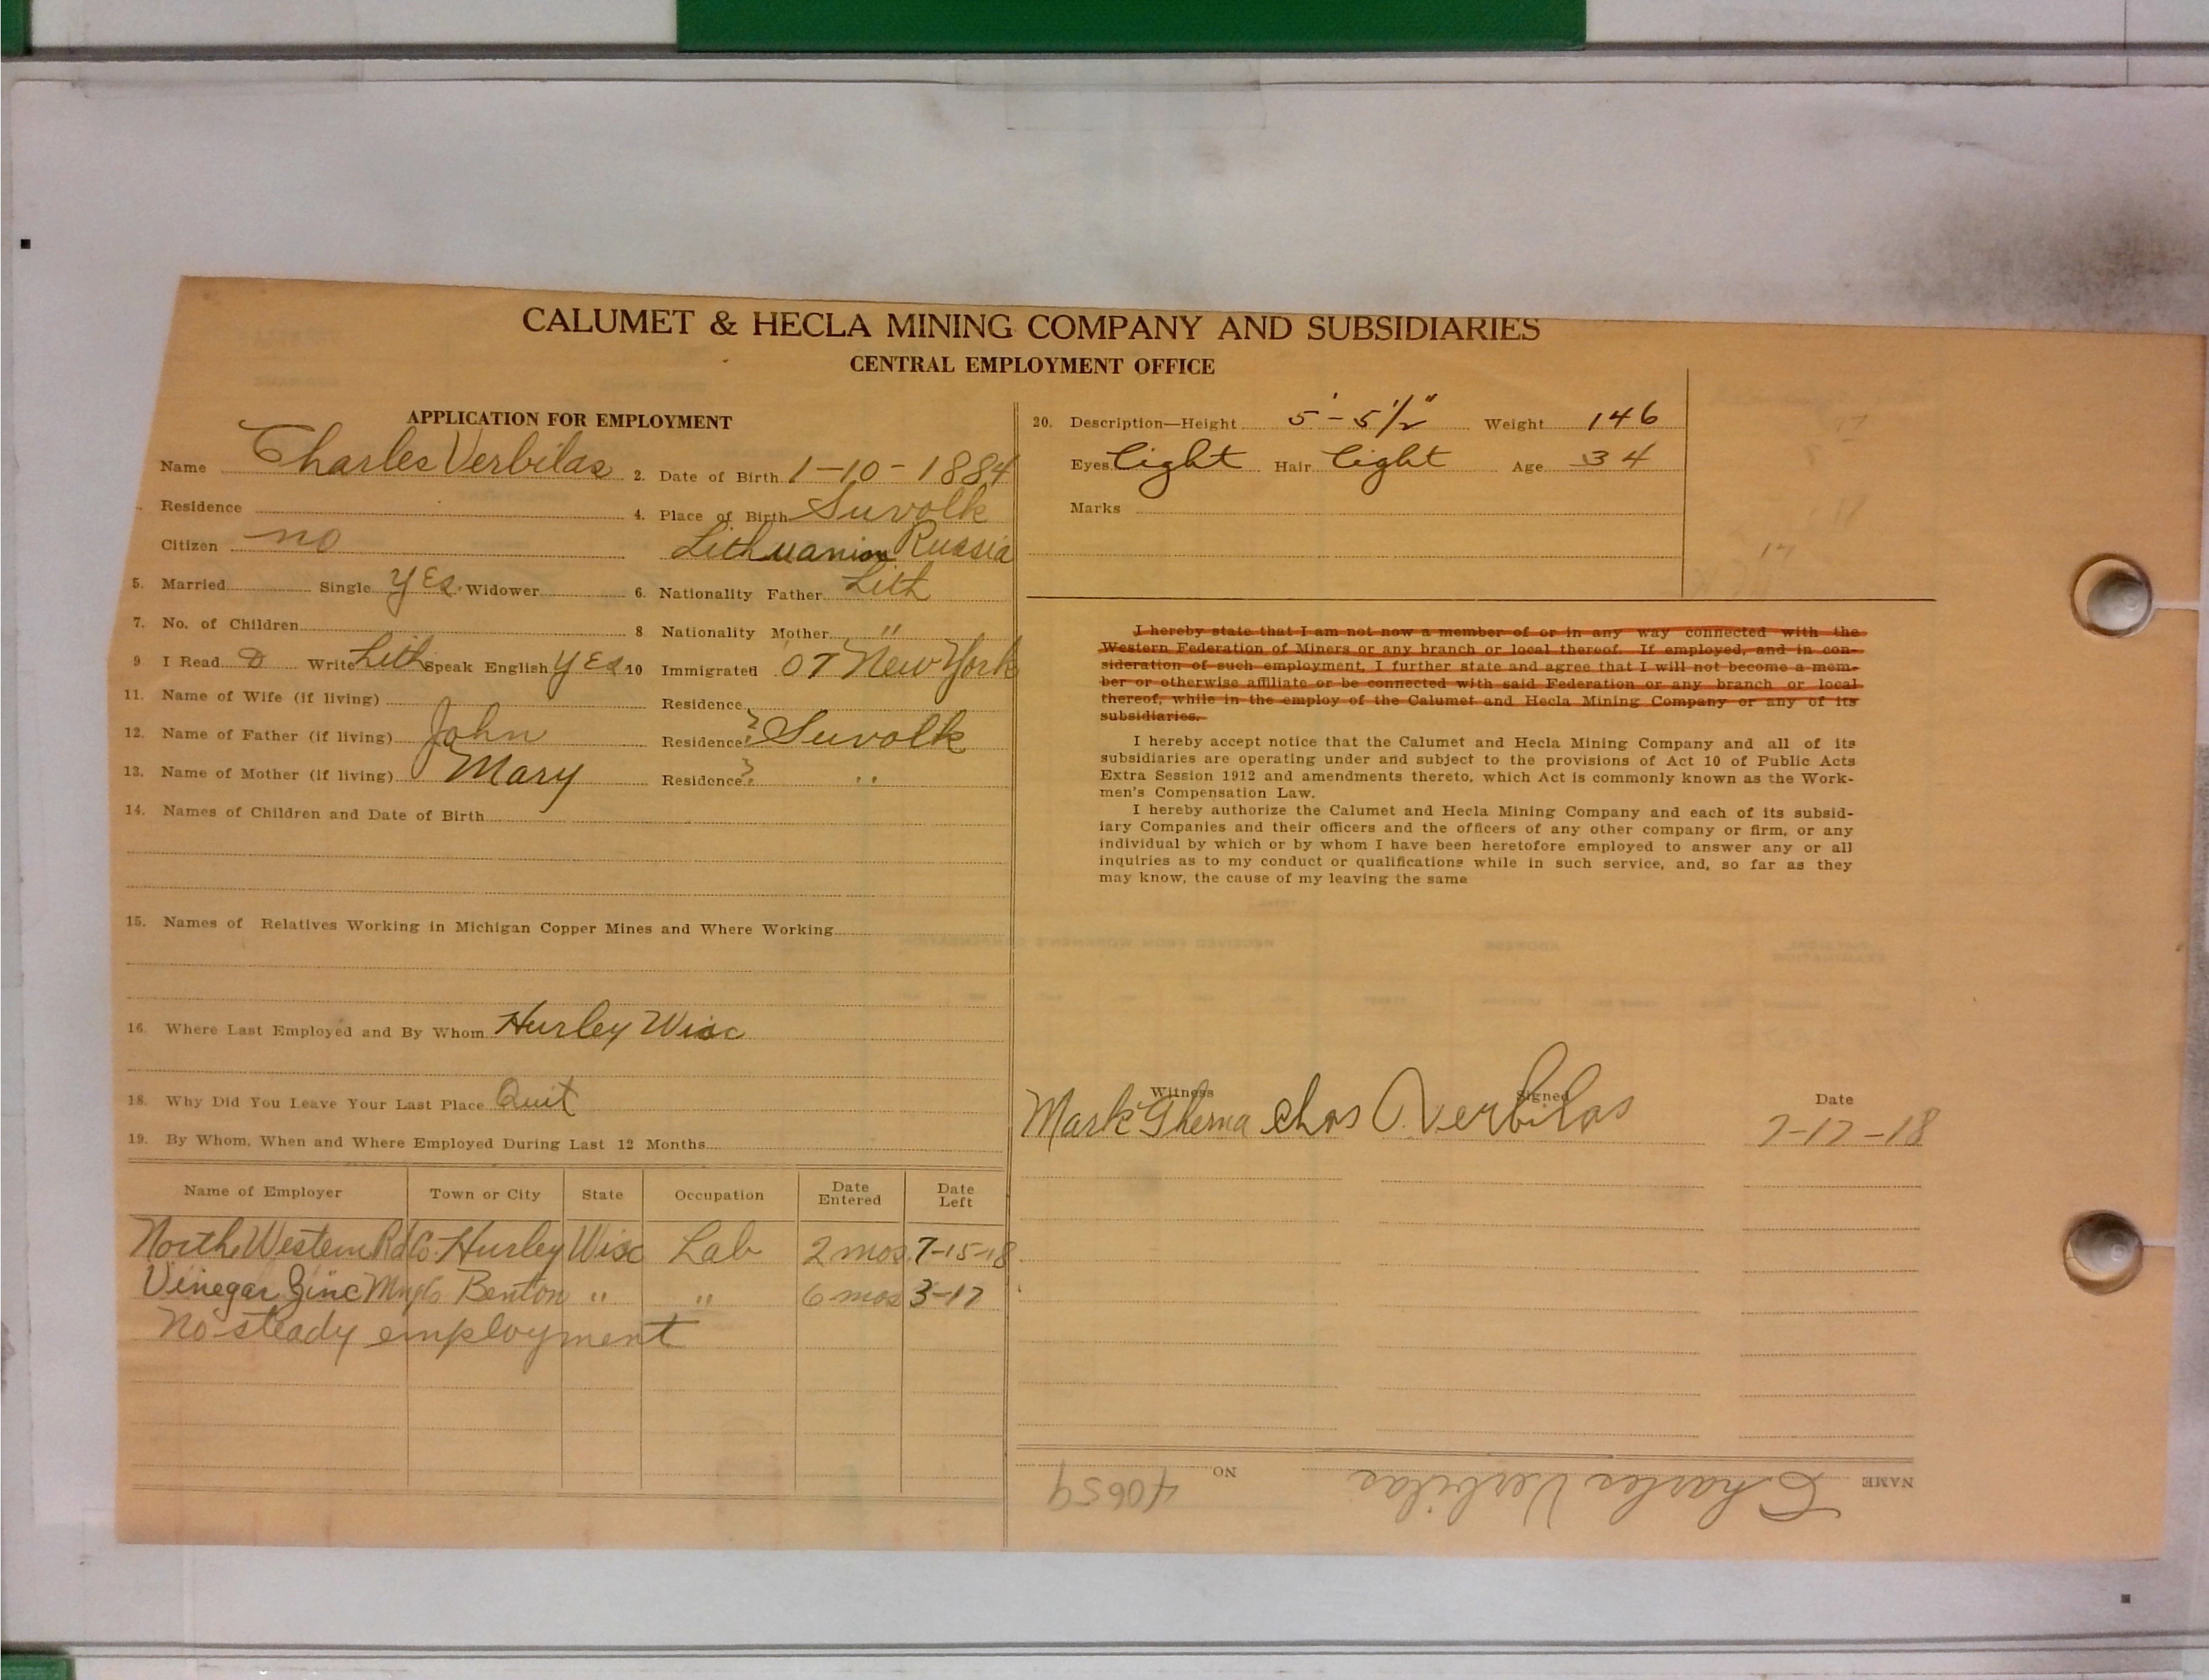 CALUMET & HECLA MINING COMPANY AND SUBSIDIARIES
CENTRAL EMPLOYMENT OFFICE
APPLICATION FOR EMPLOYMENT
Name Charles Verbilas 2. Date of Birth 1-10-1884
Residence 4. Place of Birth Suvolk
Citizen no Lithuanian Russia
5. Married Single yes Widower 6. Nationality Father Lith
7. No. of Children 8 Nationality Mother "
9 I Read Write Lith Speak English yes 10 Immigrated 07 New York
11. Name of Wife (if living) Residence
12. Name of Father (if living) John Residence? Suvolk
13. Name of Mother (if living) Mary Residence? "
14. Names of Children and Date of Birth
15. Names of Relatives Working in Michigan Copper Mines and Where Working
16. Where Last Employed and By Whom Hurley Wisc
18. Why Did You Leave Your Last Place Quit
19. By Whom, When and Where Employed During Last 12 Months
Name of Employer Town or City State Occupation Date Entered Date Left
North Western Rd Co. Hurley Wisc Lab 2 mos 7-15-18
Vinegar Zinc Mng Co Benton " " 6 mos 3-17
No steady employment
20. Description—Height 5'-5 1/2" Weight 146
Eyes light Hair light Age 34
Marks
I hereby state that I am not now a member of or in any way connected with the
Western Federation of Miners or any branch or local thereof. If employed, and in con-
sideration of such employment, I further state and agree that I will not become a mem-
ber or otherwise affiliate or be connected with said Federation or any branch or local
thereof, while in the employ of the Calumet and Hecla Mining Company or any of its
subsidiaries.
I hereby accept notice that the Calumet and Hecla Mining Company and all of its
subsidiaries are operating under and subject to the provisions of Act 10 of Public Acts
Extra Session 1912 and amendments thereto, which Act is commonly known as the Work-
men's Compensation Law.
I hereby authorize the Calumet and Hecla Mining Company and each of its subsid-
iary Companies and their officers and the officers of any other company or firm, or any
individual by which or by whom I have been heretofore employed to answer any or all
inquiries as to my conduct or qualifications while in such service, and, so far as they
may know, the cause of my leaving the same
Witness Signed Date
Mark Chas Verbilas 7-17-18
NAME Charles Verbilas NO 40659